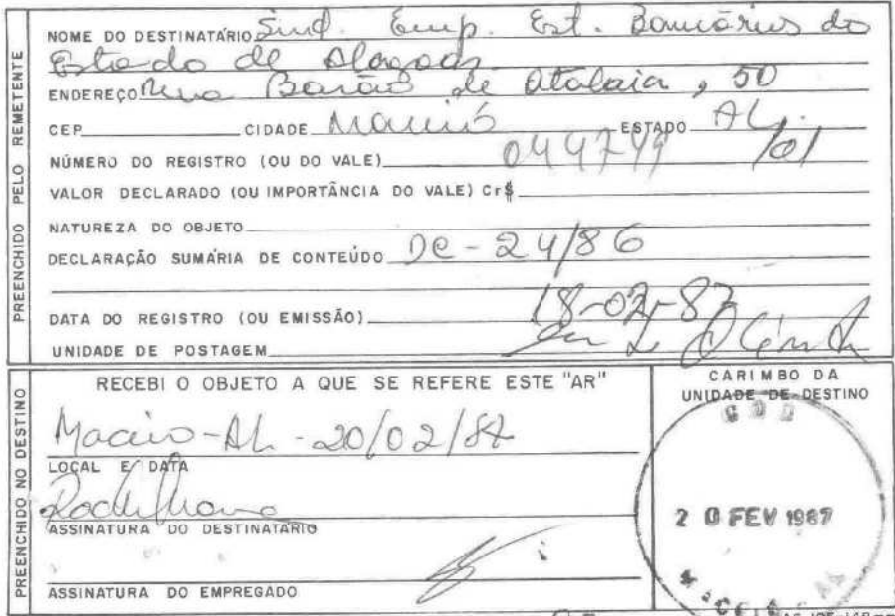 PREENCHIDO PELO REMETENTE
NOME DO DESTINATÁRIO Sind. Emp. Est. Bancários do
Estado de Alagoas
ENDEREÇO Rua Barão de Atalaia, 50
CEP CIDADE Maceió ESTADO AL.
NÚMERO DO REGISTRO (OU DO VALE) 044749 101
VALOR DECLARADO (OU IMPORTÂNCIA DO VALE) Cr$
NATUREZA DO OBJETO
DECLARAÇÃO SUMÁRIA DE CONTEÚDO DC-24/86
DATA DO REGISTRO (OU EMISSÃO) 18-02-87
UNIDADE DE POSTAGEM
PREENCHIDO NO DESTINO
RECEBI O OBJETO A QUE SE REFERE ESTE "AR"
Maceio-AL-20/02/87
LOCAL E DATA
ASSINATURA DO DESTINATÁRIO
ASSINATURA DO EMPREGADO
CARIMBO DA
UNIDADE DE DESTINO
20 FEV 1987
MACEIÓ - AL